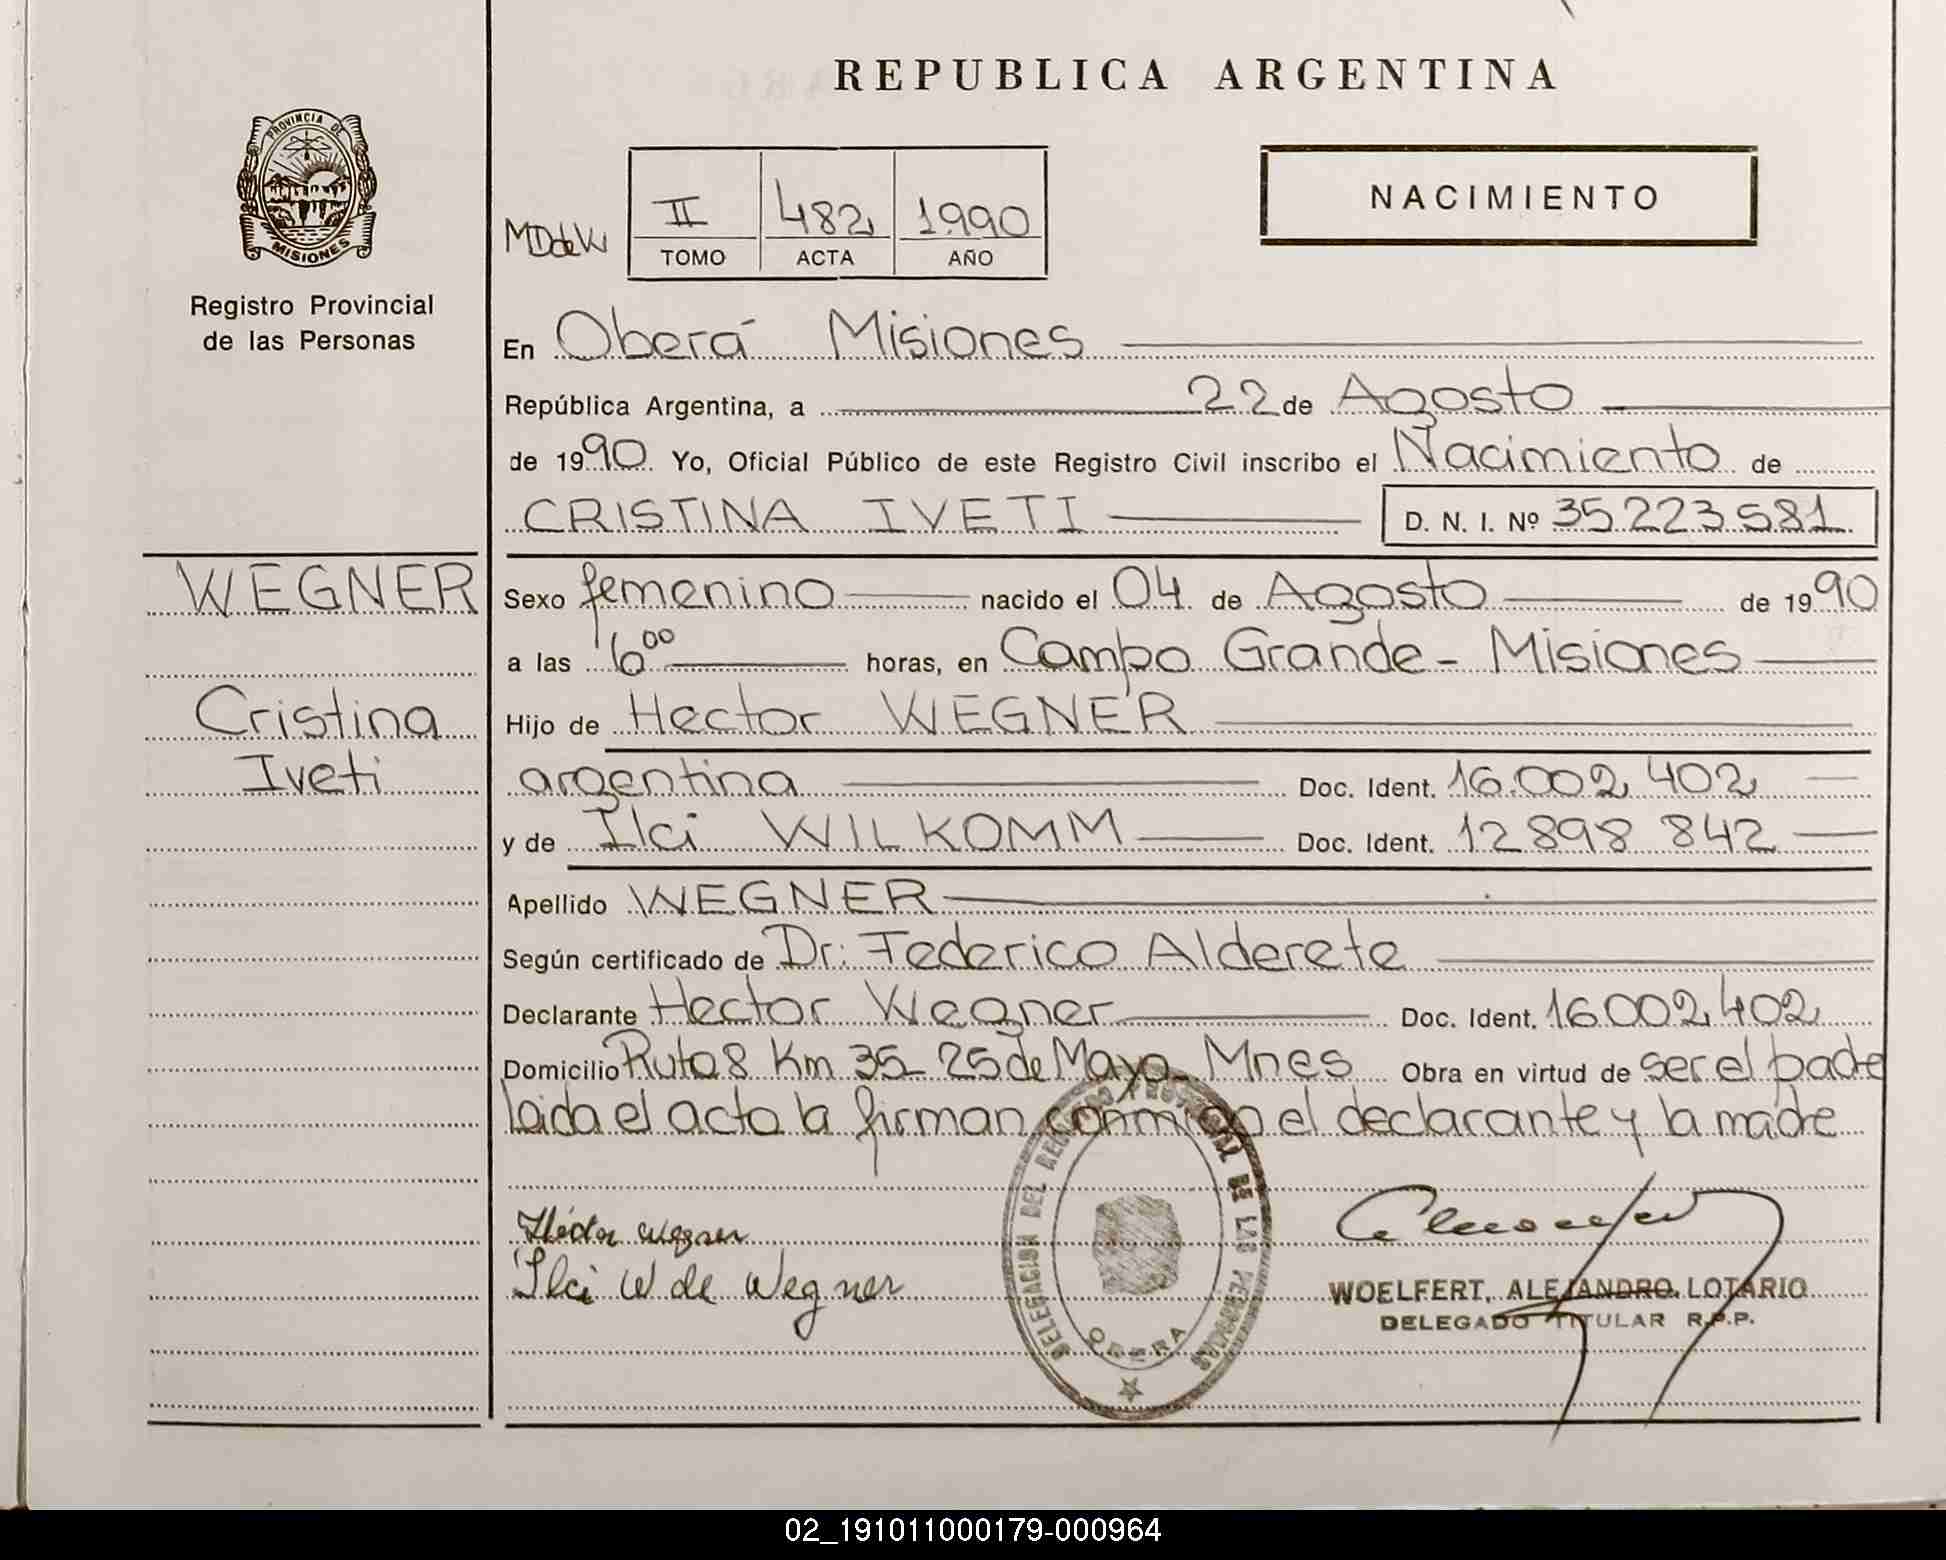 REPUBLICA ARGENTINA
PROVINCIA DE
MISIONES
Registro Provincial
de las Personas
MD de W
II 482 1990
TOMO ACTA AÑO
NACIMIENTO
En Oberá Misiones
República Argentina, a 22 de Agosto
de 1990 Yo, Oficial Público de este Registro Civil inscribo el Nacimiento de
CRISTINA IVETI D. N. I. Nº 35223581
WEGNER
Cristina
Iveti
Sexo femenino nacido el 04 de Agosto de 1990
a las 6⁰⁰ horas, en Campo Grande - Misiones
Hijo de Hector WEGNER
argentina Doc. Ident. 16.002 402
y de Ilci WILKOMM Doc. Ident. 12898 842
Apellido WEGNER
Según certificado de Dr: Federico Alderete
Declarante Hector Wegner Doc. Ident. 16002402
Domicilio Ruta 8 Km 35 - 25 de Mayo - Mnes Obra en virtud de ser el padre
Leida el acta la firman conmigo el declarante y la madre
Héctor Wegner
Ilci W de Wegner
DELEGACION DEL REGISTRO PROVINCIAL DE LAS PERSONAS
OBERA
WOELFERT, ALEJANDRO LOTARIO
DELEGADO TITULAR R.P.P.
02_191011000179-000964